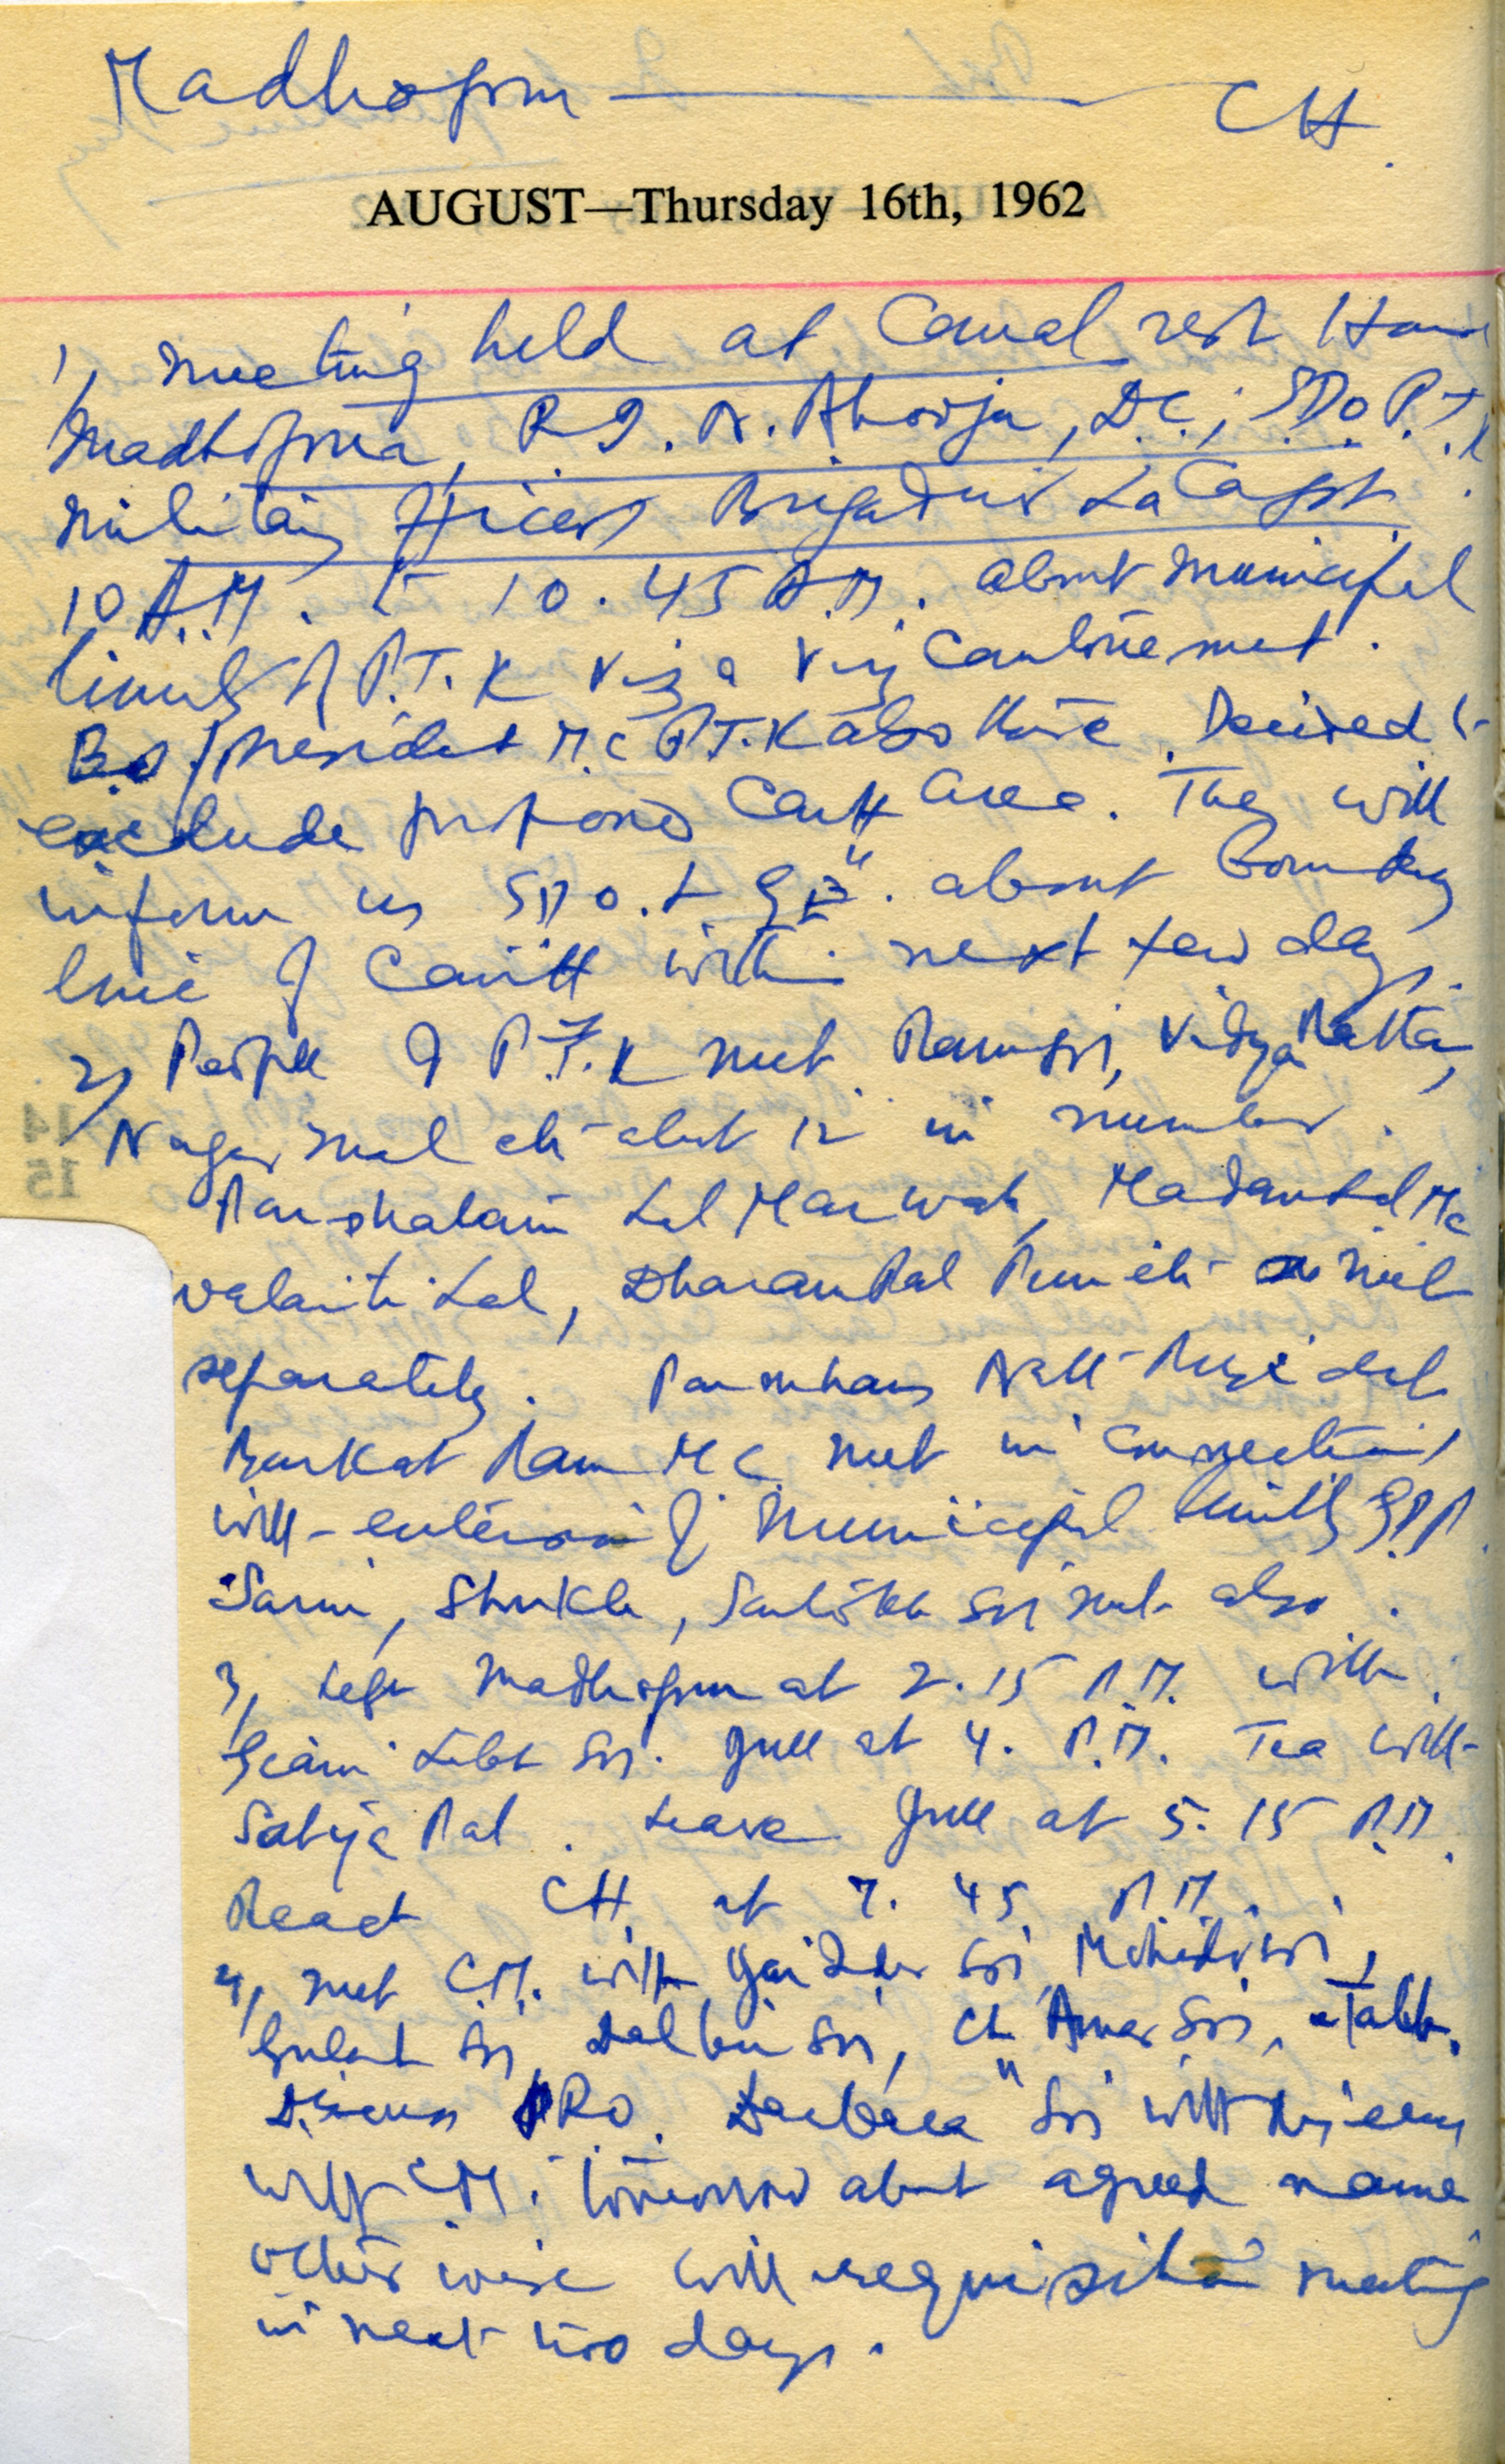 Madhopur — CH.
AUGUST—Thursday 16th, 1962
1, meeting held at Canal rest House
Madhopur, R.I.N. Ahooja, D.C.; S.D.O. P.T.K.
Military officers Brigadier to Capt.
10 A.M. to 10.45 A.M. about Municipal
limits of P.T.K viz a viz Cantonement.
President M.C P.T.K also there. Decided to
exclude Cantt area. They will
inform us S.D.O. about Boundary
line of Cantt within next few days.
2, People of P.T.K met. Ram Sri, Vidya Rattan,
Nagar Mal etc about 12 in number.
Parshotam Lal Marwah, Madan Lal MC
Walaiti Lal, Dharam Pal met
separately. Nath President
Barkat Ram MC met in connection
with extension of Municipal limits
Sarin, Shukla, Santokh Sri met also.
3, Left Madhopur at 2.15 P.M. with
Giani Labh Sri. Jull at 4. P.M. Tea with
Satya Pal. Leave Jull at 5.15 P.M.
Reach CH. at 7.45 P.M.
4, met C.M. with Sri, Mohinder Sri,
Gulab Sri, Dalbir Sri, Ch Amar Sri,
Discuss PRO. Darbara Sri will
with C.M. tomorrow about agreed name
otherwise will requisition meeting
in next two days.